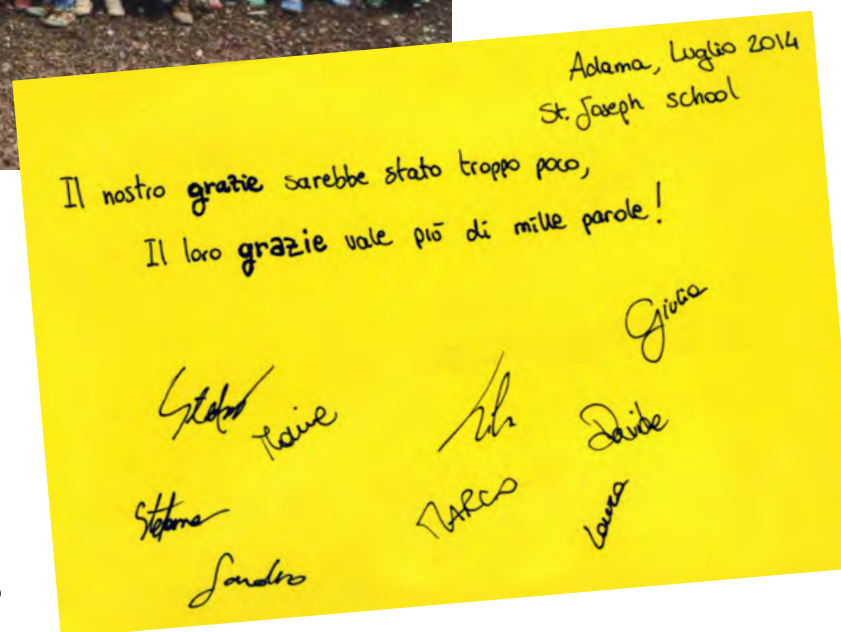 Adama, Luglio 2014
St. Joseph school
Il nostro grazie sarebbe stato troppo poco,
Il loro grazie vale più di mille parole!
Giulia
Stefano
Davide
MARCO
Laura
Stefania
Sandro